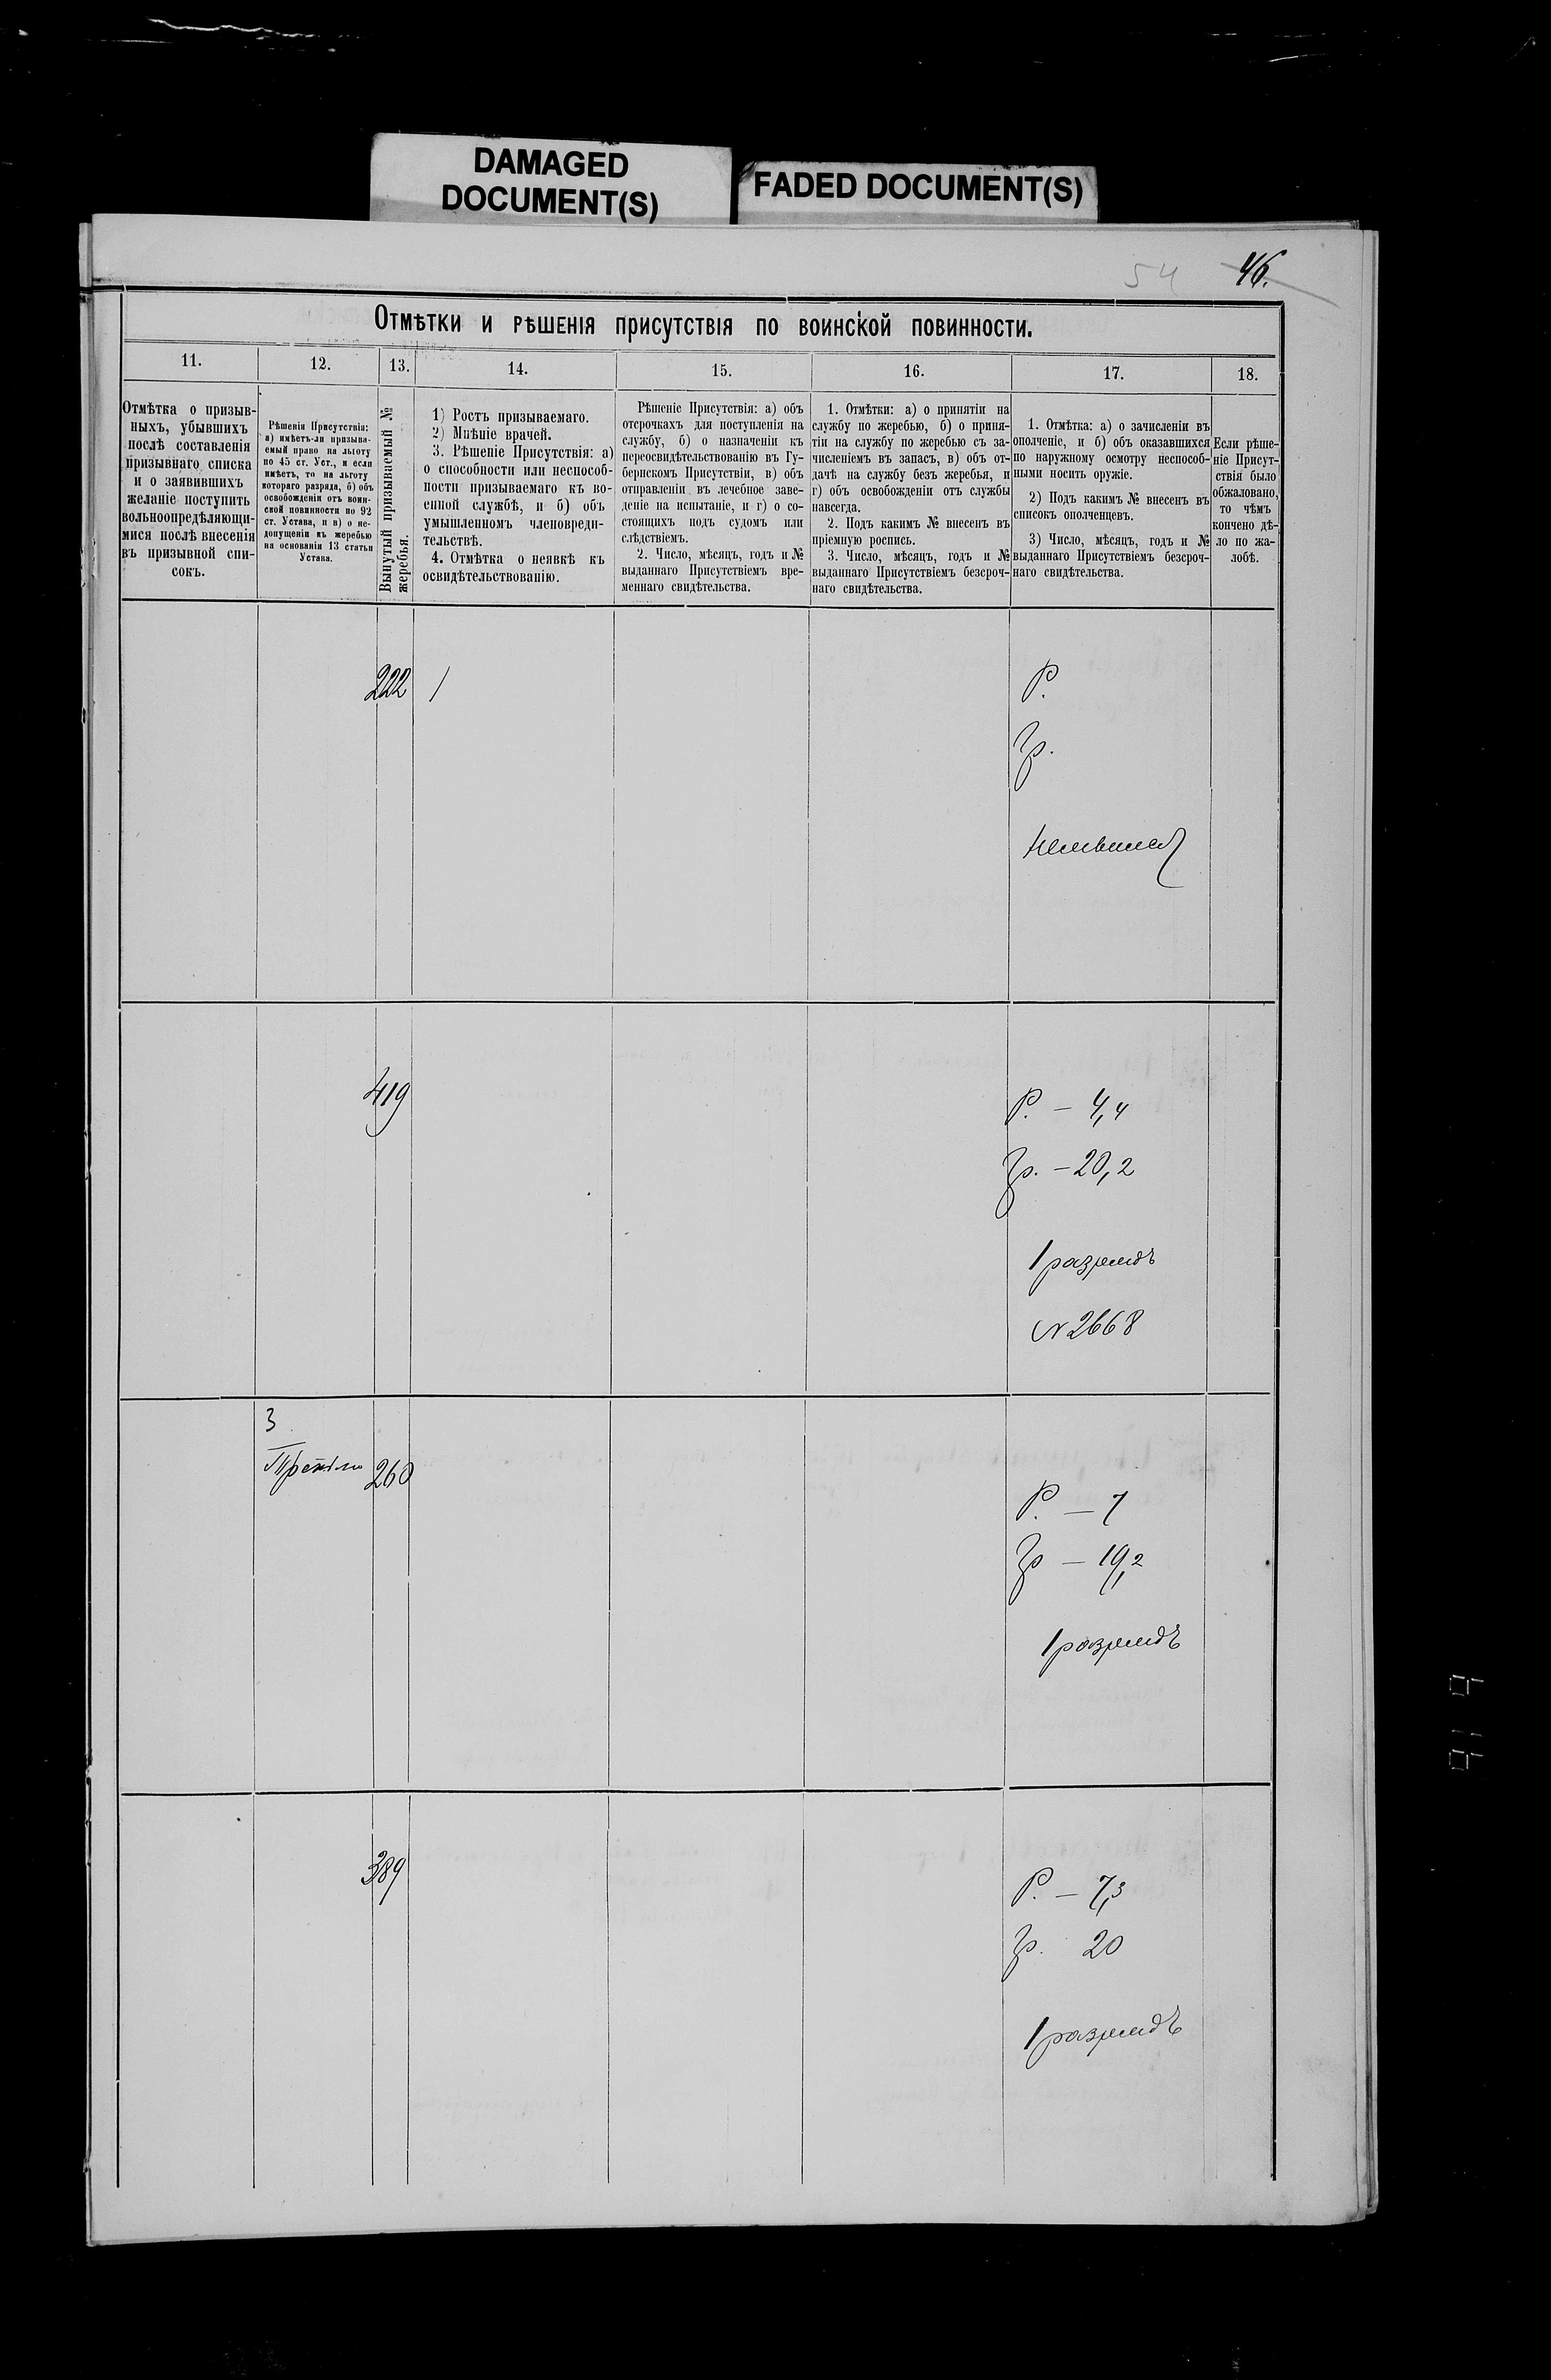 DAMAGED
DOCUMENT(S)
FADED DOCUMENT(S)
54
46.
Отмѣтки и рѣшенія присутствія по воинской повинности.
11.
12.
13.
14.
15.
16.
17.
18.
Отмѣтка о призыв-
ныхъ, убывшихъ
послѣ составленія
призывнаго списка
и о заявившихъ
желаніе поступить
вольноопредѣляющи-
мися послѣ внесенія
въ призывной спи-
сокъ.
Рѣшенія Присутствія:
а) имѣетъ-ли призыва-
емый право на льготу
по 45 ст. Уст., и если
имѣетъ, то на льготу
котораго разряда, б) объ
освобожденіи отъ воин-
ской повинности по 92
ст. Устава, и в) о не-
допущеніи къ жеребью
на основаніи 13 статьи
Устава.
Вынутый призываемый №
жеребья.
1) Ростъ призываемаго.
2) Мнѣніе врачей.
3. Рѣшеніе Присутствія: а)
о способности или неспособ-
ности призываемаго къ во-
енной службѣ, и б) объ
умышленномъ членовреди-
тельствѣ.
4. Отмѣтка о неявкѣ къ
освидѣтельствованію.
Рѣшеніе Присутствія: а) объ
отсрочкахъ для поступленія на
службу, б) о назначеніи къ
переосвидѣтельствованію въ Гу-
бернскомъ Присутствіи, в) объ
отправленіи въ лечебное заве-
деніе на испытаніе, и г) о со-
стоящихъ подъ судомъ или
слѣдствіемъ.
2. Число, мѣсяцъ, годъ и №
выданнаго Присутствіемъ вре-
меннаго свидѣтельства.
1. Отмѣтки: а) о принятіи на
службу по жеребью, б) о приня-
тіи на службу по жеребью съ за-
численіемъ въ запасъ, в) объ от-
дачѣ на службу безъ жеребья, и
г) объ освобожденіи отъ службы
навсегда.
2. Подъ какимъ № внесенъ въ
пріемную роспись.
3. Число, мѣсяцъ, годъ и №
выданнаго Присутствіемъ безсроч-
наго свидѣтельства.
1. Отмѣтка: а) о зачисленіи въ
ополченіе, и б) объ оказавшихся
по наружному осмотру неспособ-
ными носить оружіе.
2) Подъ какимъ № внесенъ въ
списокъ ополченцевъ.
3) Число, мѣсяцъ, годъ и №
выданнаго Присутствіемъ безсроч-
наго свидѣтельства.
Если рѣше-
ніе Присут-
ствія было
обжаловано,
то чѣмъ
кончено дѣ-
ло по жа-
лобѣ.
222
1
Р.
Гр.
Неявился
419
Р. — 4,4
Гр. — 20,2
1 разрядъ
№ 2668
3
260
Р. — 7
Гр — 19,2
1 разрядъ
389
Р. — 7,3
Гр. 20
1 разрядъ